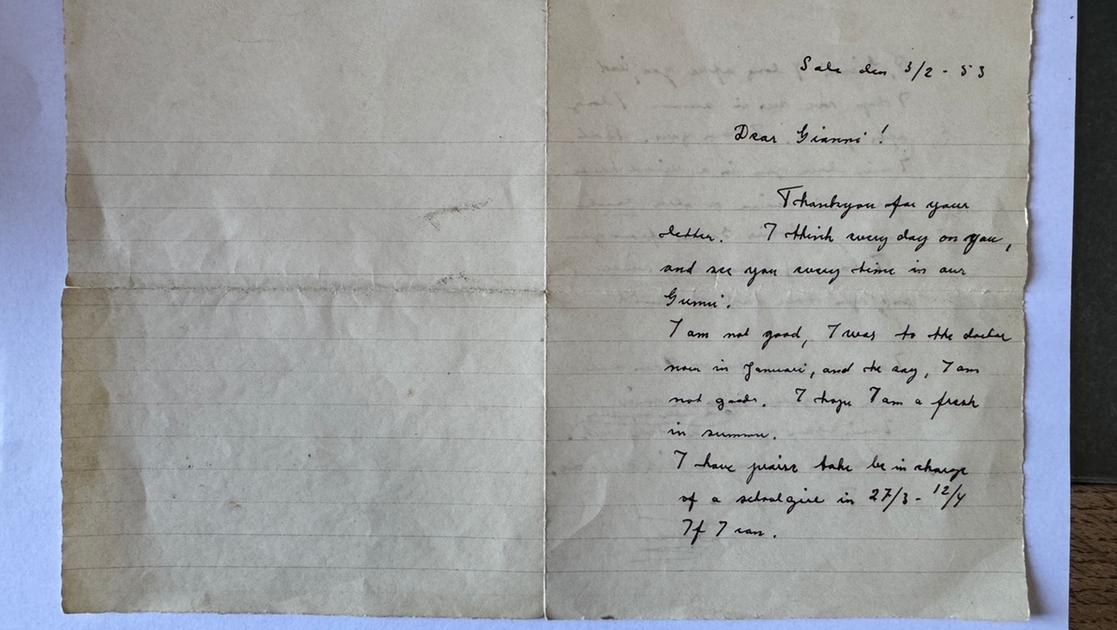 Sala den 3/2 - 53
Dear Gianni!
Thankyou for your
letter. I think every day on you,
and see you every time in our
I am not good, I was to the doctor
now in Januari, and he say, I am
not good. I hope I am a fresh
in summer.
I have take be in charge
of a schoolgirl in 27/3 - 12/4
If I can.